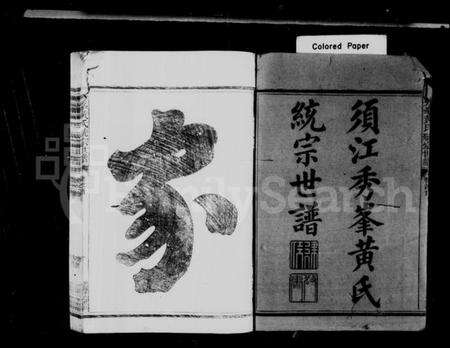 Colored Paper
須江秀峯黃氏
統宗世譜
家
FamilySearch